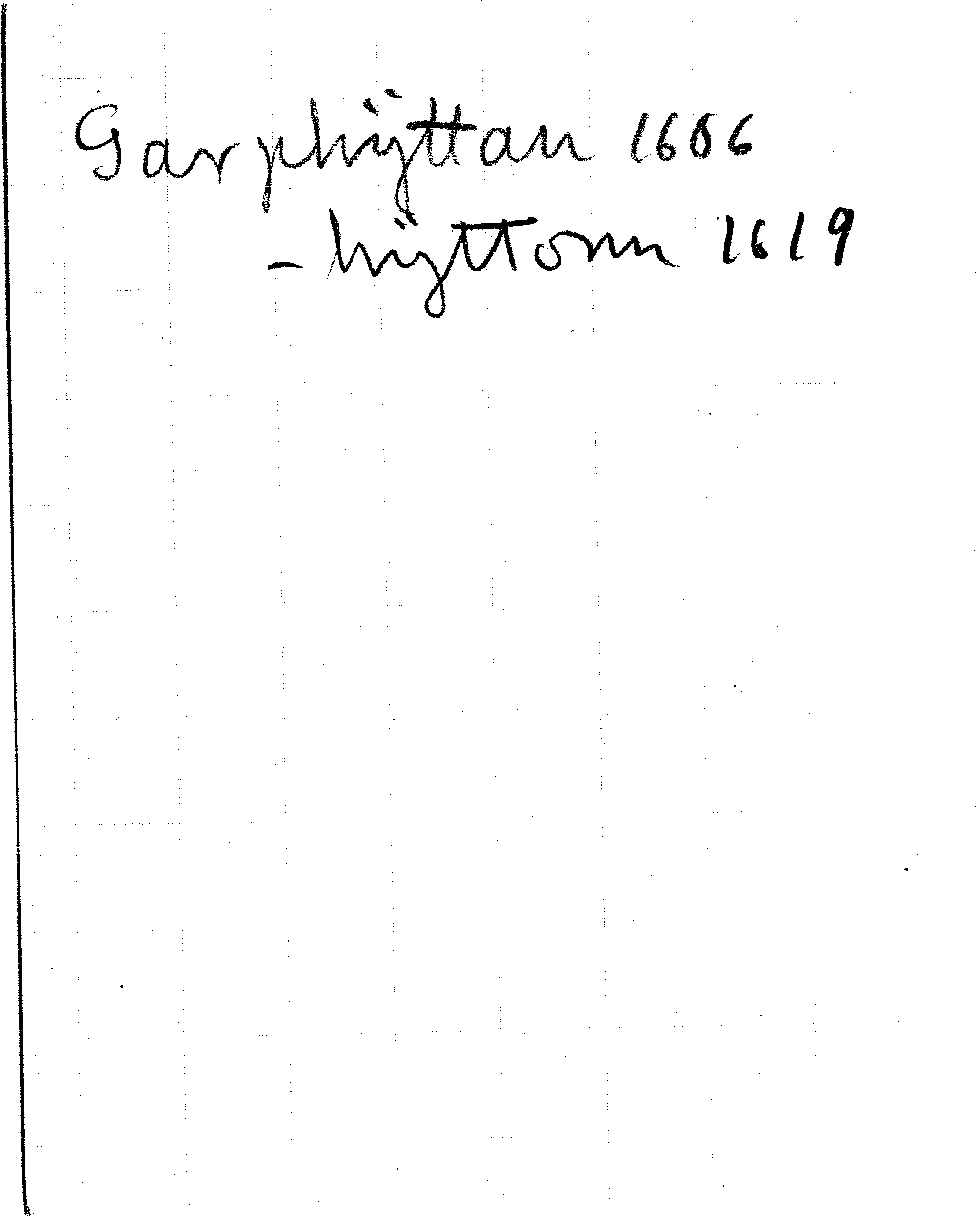 Garphÿttan 1606
- hÿttonn 1619